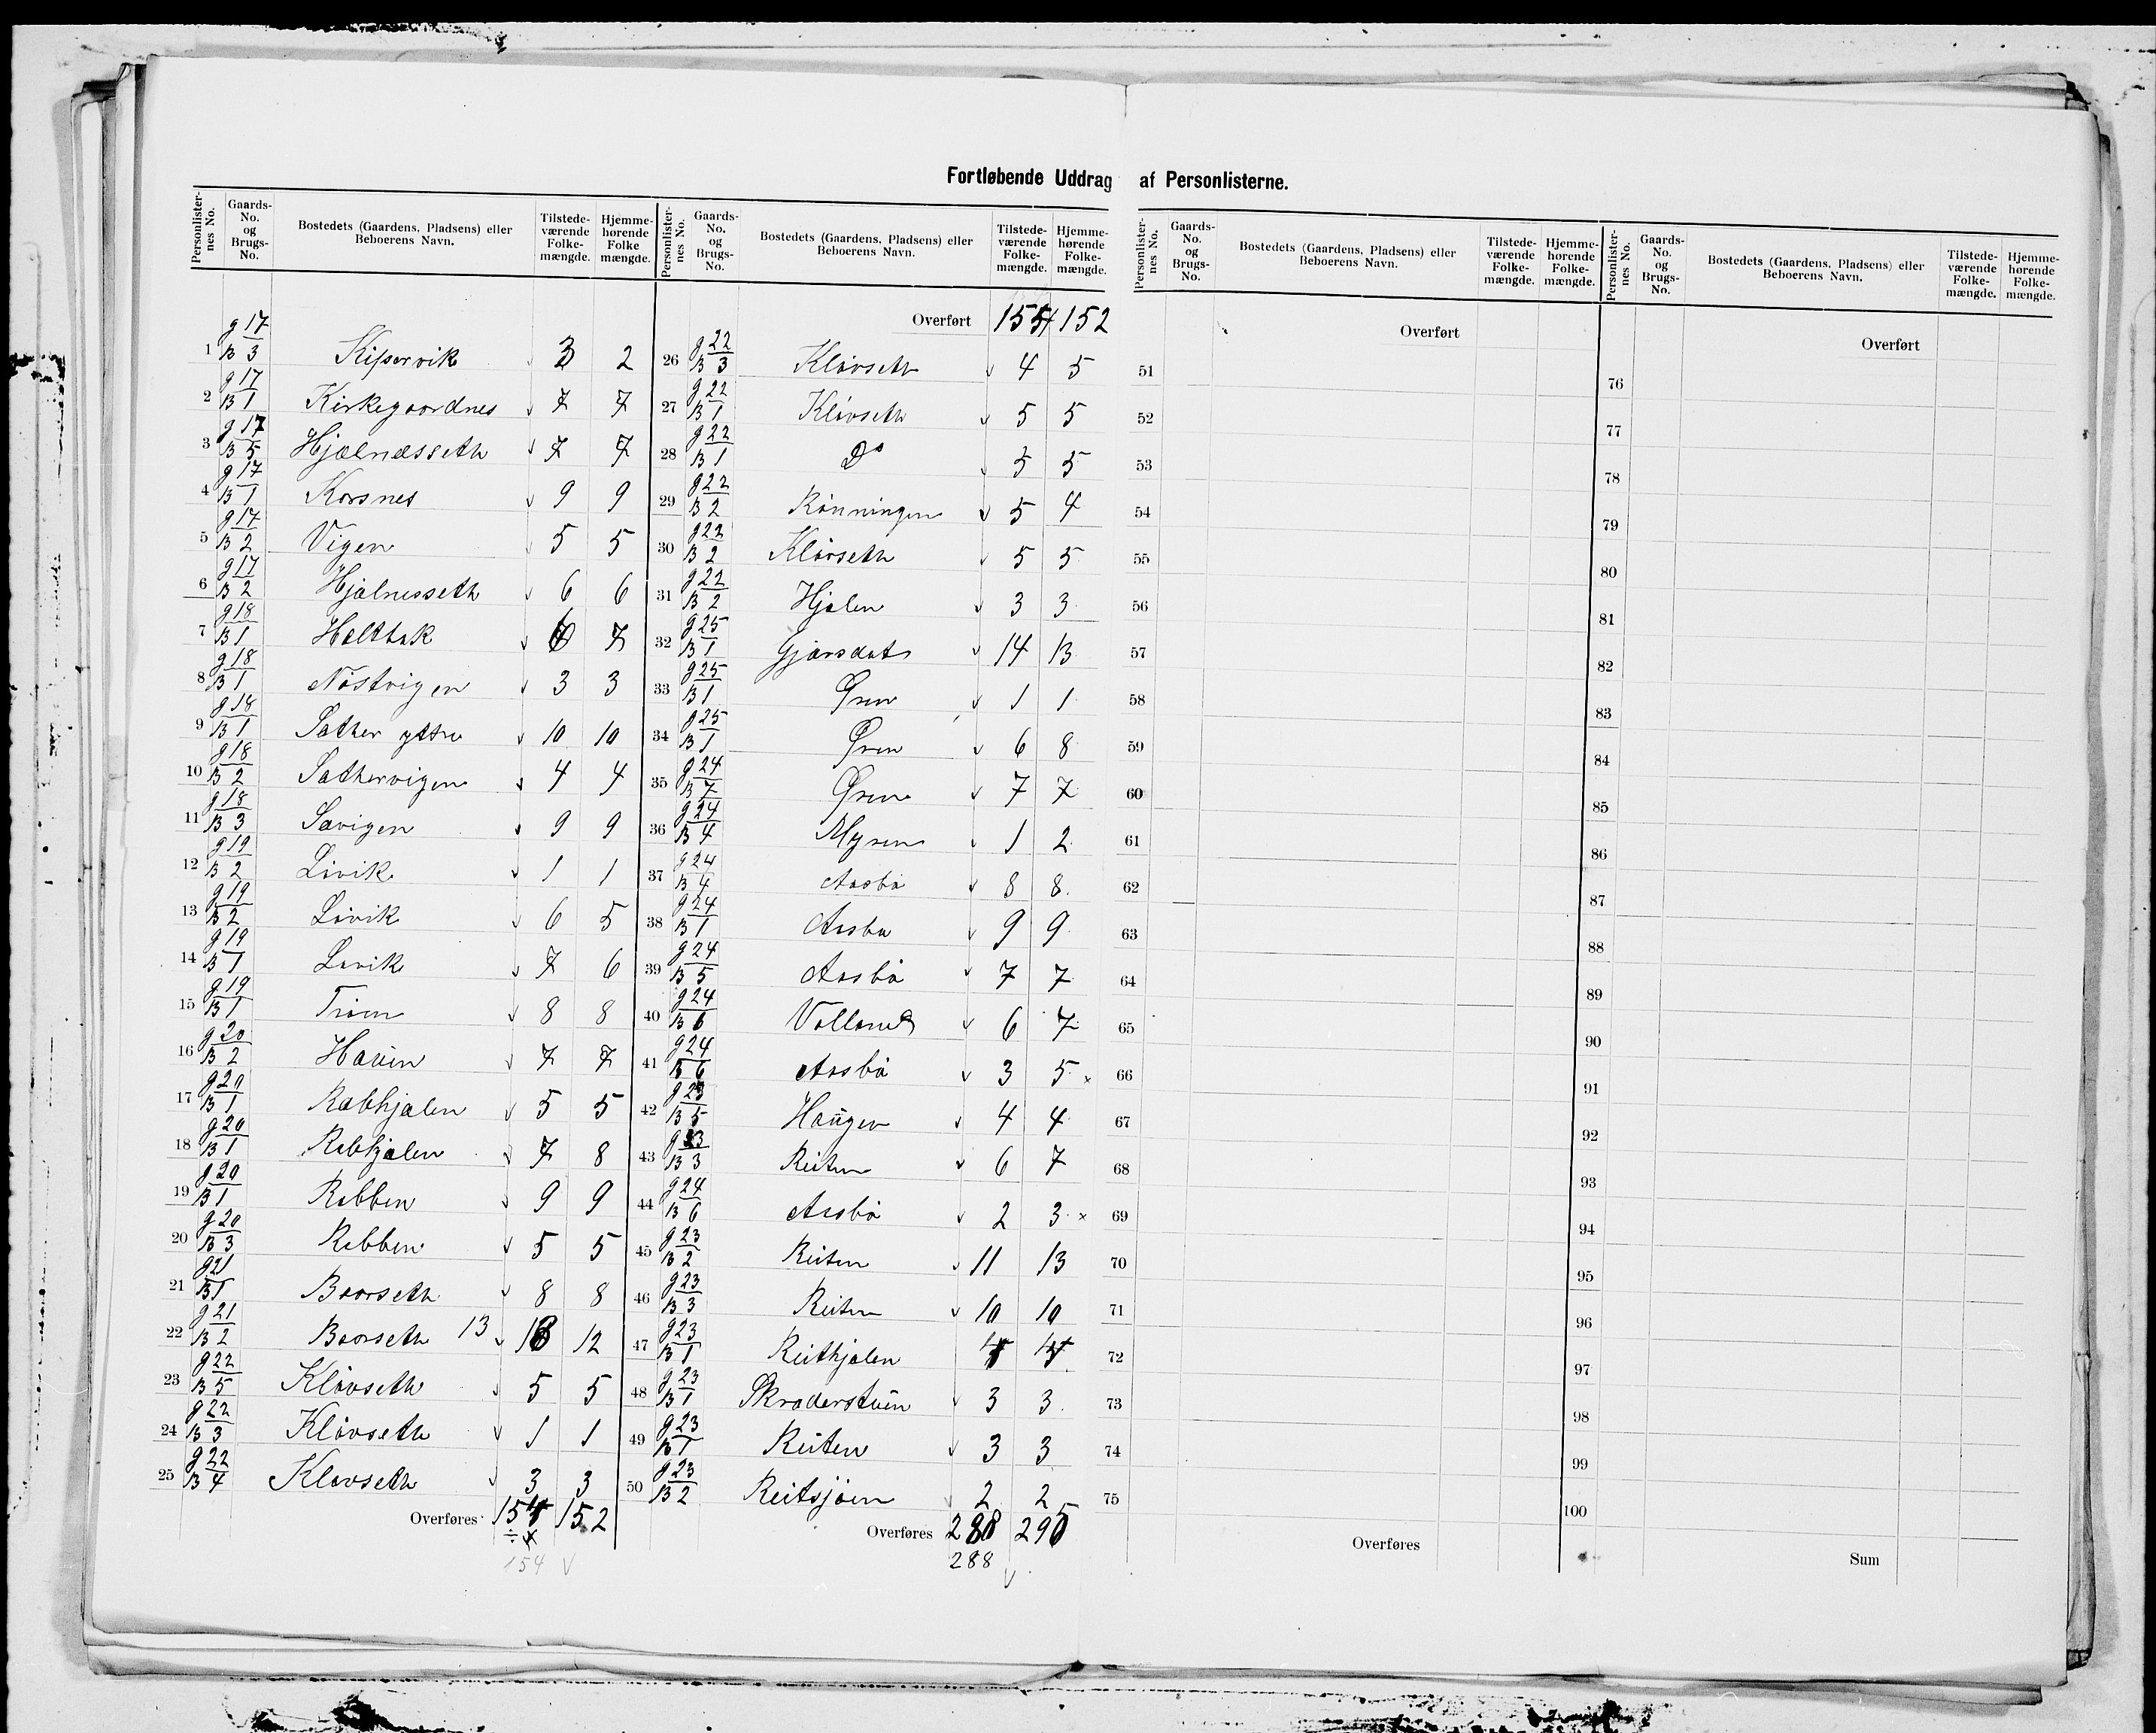 Fortløbende Uddrag af Personlisterne.
Personlister-nes No. Gaards-No. og Brugs-No. Bostedets (Gaardens, Pladsens) eller Beboerens Navn. Tilstede-værende Folke-mængde. Hjemme-hørende Folke mængde.
1 g 17 B 3 2
2 g 17 B 1 Kirkegaardnes v 7 7
3 g 17 B 5 Hjælnæsseth v 7 7
4 g 17 B 1 Korsnes v 9 9
5 g 17 B 2 Vigen v 5 5
6 g 17 B 2 Hjelnesseth v 6 6
7 g 18 B 1 Halthak v 7
8 g 18 B 1 Nöstvigen v 3 3
9 g 18 B 1 Sæther yttre v 10 10
10 g 18 B 2 Sæthervigen v 4 4
11 g 18 B 3 Sævigen v 9 9
12 g 19 B 2 Lövik v 1 1
13 g 19 B 2 Lövik v 6 5
14 g 19 B 1 Lövik v 7 6
15 g 19 B 1 v 8 8
16 g 20 B 2 Haüen v 7 7
17 g 20 B 1 Rabhjælen v 5 5
18 g 20 B 1 Rabhjælen v 7 8
19 g 20 B 1 Rabben v 9 9
20 g 20 B 3 Rabben v 5 5
21 g 21 B 1 Baarseth v 8 8
22 g 21 B 2 Baarseth 13 v 12
23 g 22 B 5 Klövseth v 5 5
24 g 22 B 3 Klövseth v 1 1
25 g 22 B 4 Klövseth v 3 3
Overføres 154 152
154 v
Personlister-nes No. Gaards-No. og Brugs-No. Bostedets (Gaardens, Pladsens) eller Beboerens Navn. Tilstede-værende Folke-mængde. Hjemme-hørende Folke-mængde.
Overført 154 152
26 g 22 B 3 Klövseth v 4 5
27 g 22 B 1 Klövseth v 5 5
28 g 22 B 1 Do v 5 5
29 g 22 B 2 Rönningen v 5 4
30 g 22 B 2 Klövseth v 5 5
31 g 22 B 2 Hjælen v 3 3
32 g 25 B 1 v 14 13
33 g 25 B 1 Ören v 1 1
34 g 25 B 1 Ören v 6 8
35 g 24 B 7 Ören v 7 7
36 g 24 B 4 Myren v 1 2
37 g 24 B 4 Aasbö v 8 8
38 g 24 B 1 Aasbö v 9 9
39 g 24 B 5 Aasbö v 7 7
40 g 24 B 6 Volland v 6 7
41 g 24 B 6 Aasbö v 3 5 x
42 g 23 B 5 Haügen v 4 4
43 g 23 B 3 Reiten v 6 7
44 g 24 B 6 Aasbö v 2 3 x
45 g 23 B 2 Reiten v 11 13
46 g 23 B 3 Reiten v 10 10
47 g 23 B 1 Reithjælen
48 g 23 B 1 Skræderstüen v 3 3
49 g 23 B 1 Reiten v 3 3
50 g 23 B 2 Reitsjöen v 2 2
Overføres 288 295
288 v
Personlister-nes No. Gaards-No. og Brugs-No. Bostedets (Gaardens, Pladsens) eller Beboerens Navn. Tilstede-værende Folke-mængde. Hjemme-hørende Folke-mængde.
Overført
51
52
53
54
55
56
57
58
59
60
61
62
63
64
65
66
67
68
69
70
71
72
73
74
75
Overføres
Personlister-nes No. Gaards-No. og Brugs-No. Bostedets (Gaardens, Pladsens) eller Beboerens Navn. Tilstede-værende Folke-mængde. Hjemme-hørende Folke-mængde.
Overført
76
77
78
79
80
81
82
83
84
85
86
87
88
89
90
91
92
93
94
95
96
97
98
99
100
Sum